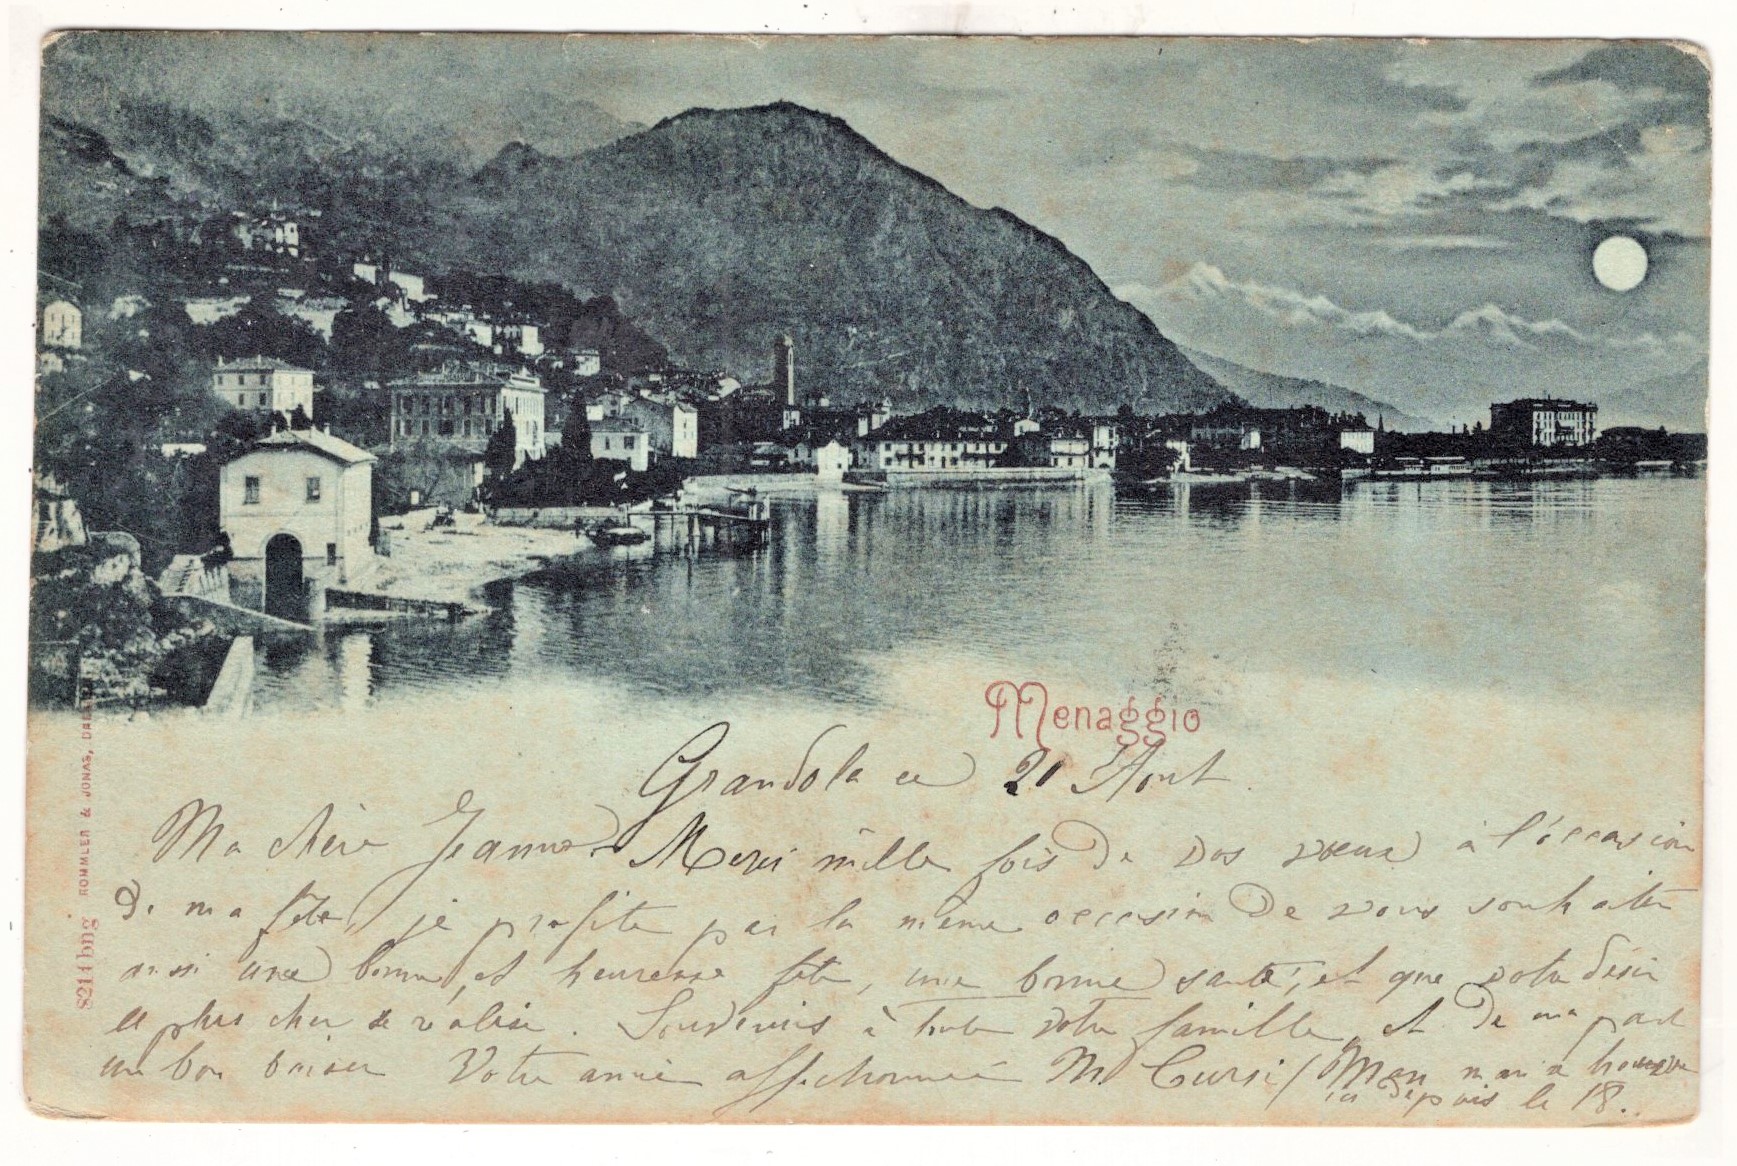 Menaggio
8211 bng ROMMLER & JONAS, DRESD
Grandola ce 21 Août.
Ma chère Jeanne. Merci mille fois de vos vœux à l'occasion
de ma fête, je profite par la même occasion de vous souhaiter
aussi une bonne et heureuse fête, une bonne santé, et que votre désir
le plus cher se realise. Souvenirs à toute votre famille, et de ma part
un bon baiser Votre amie affectionnée M. Cursi / Mon mari à
ici depuis le 18.